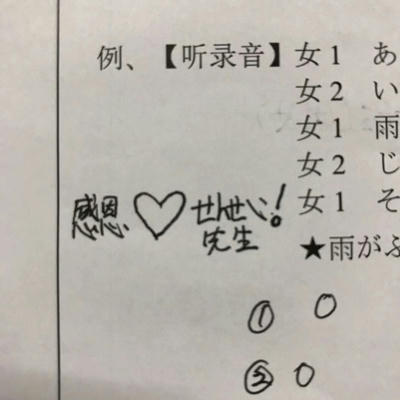 例、【听录音】女1 あ
女2 い
女1 雨
女2 じ
感恩 ♡ せんせい! 女1 そ
先生
★雨がふ
① ○
② ○